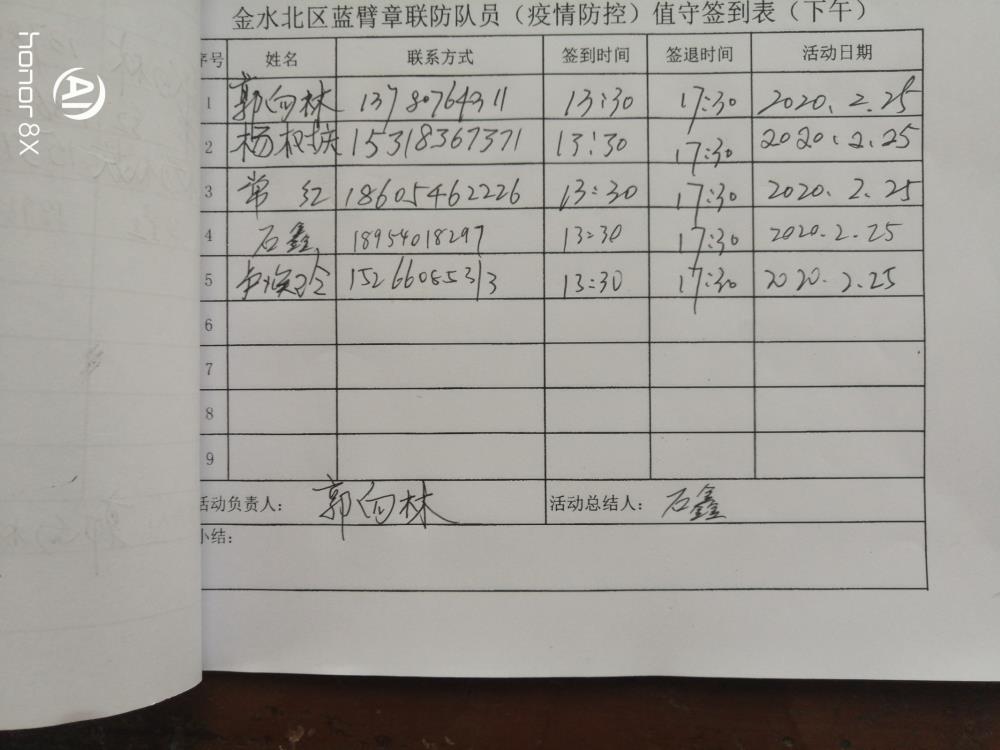 金水北区蓝臂章联防队员（疫情防控）值守签到表（下午）
序号 姓名 联系方式 签到时间 签退时间 活动日期
1 郭向林 13780764311 13:30 17:30 2020.2.25
2 杨 15318367371 13:30 17:30 2020.2.25
3 常红 18605462226 13:30 17:30 2020.2.25
4 石鑫 18954018297 13:30 17:30 2020.2.25
5 15266085313 13:30 17:30 2020.2.25
6
7
8
9
活动负责人： 郭向林 活动总结人： 石鑫
小结：
honor 8X
AI